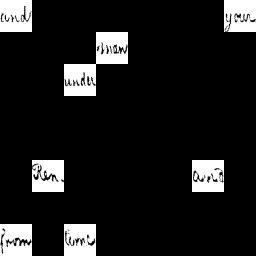 and your
man
under
Ken. and
from time